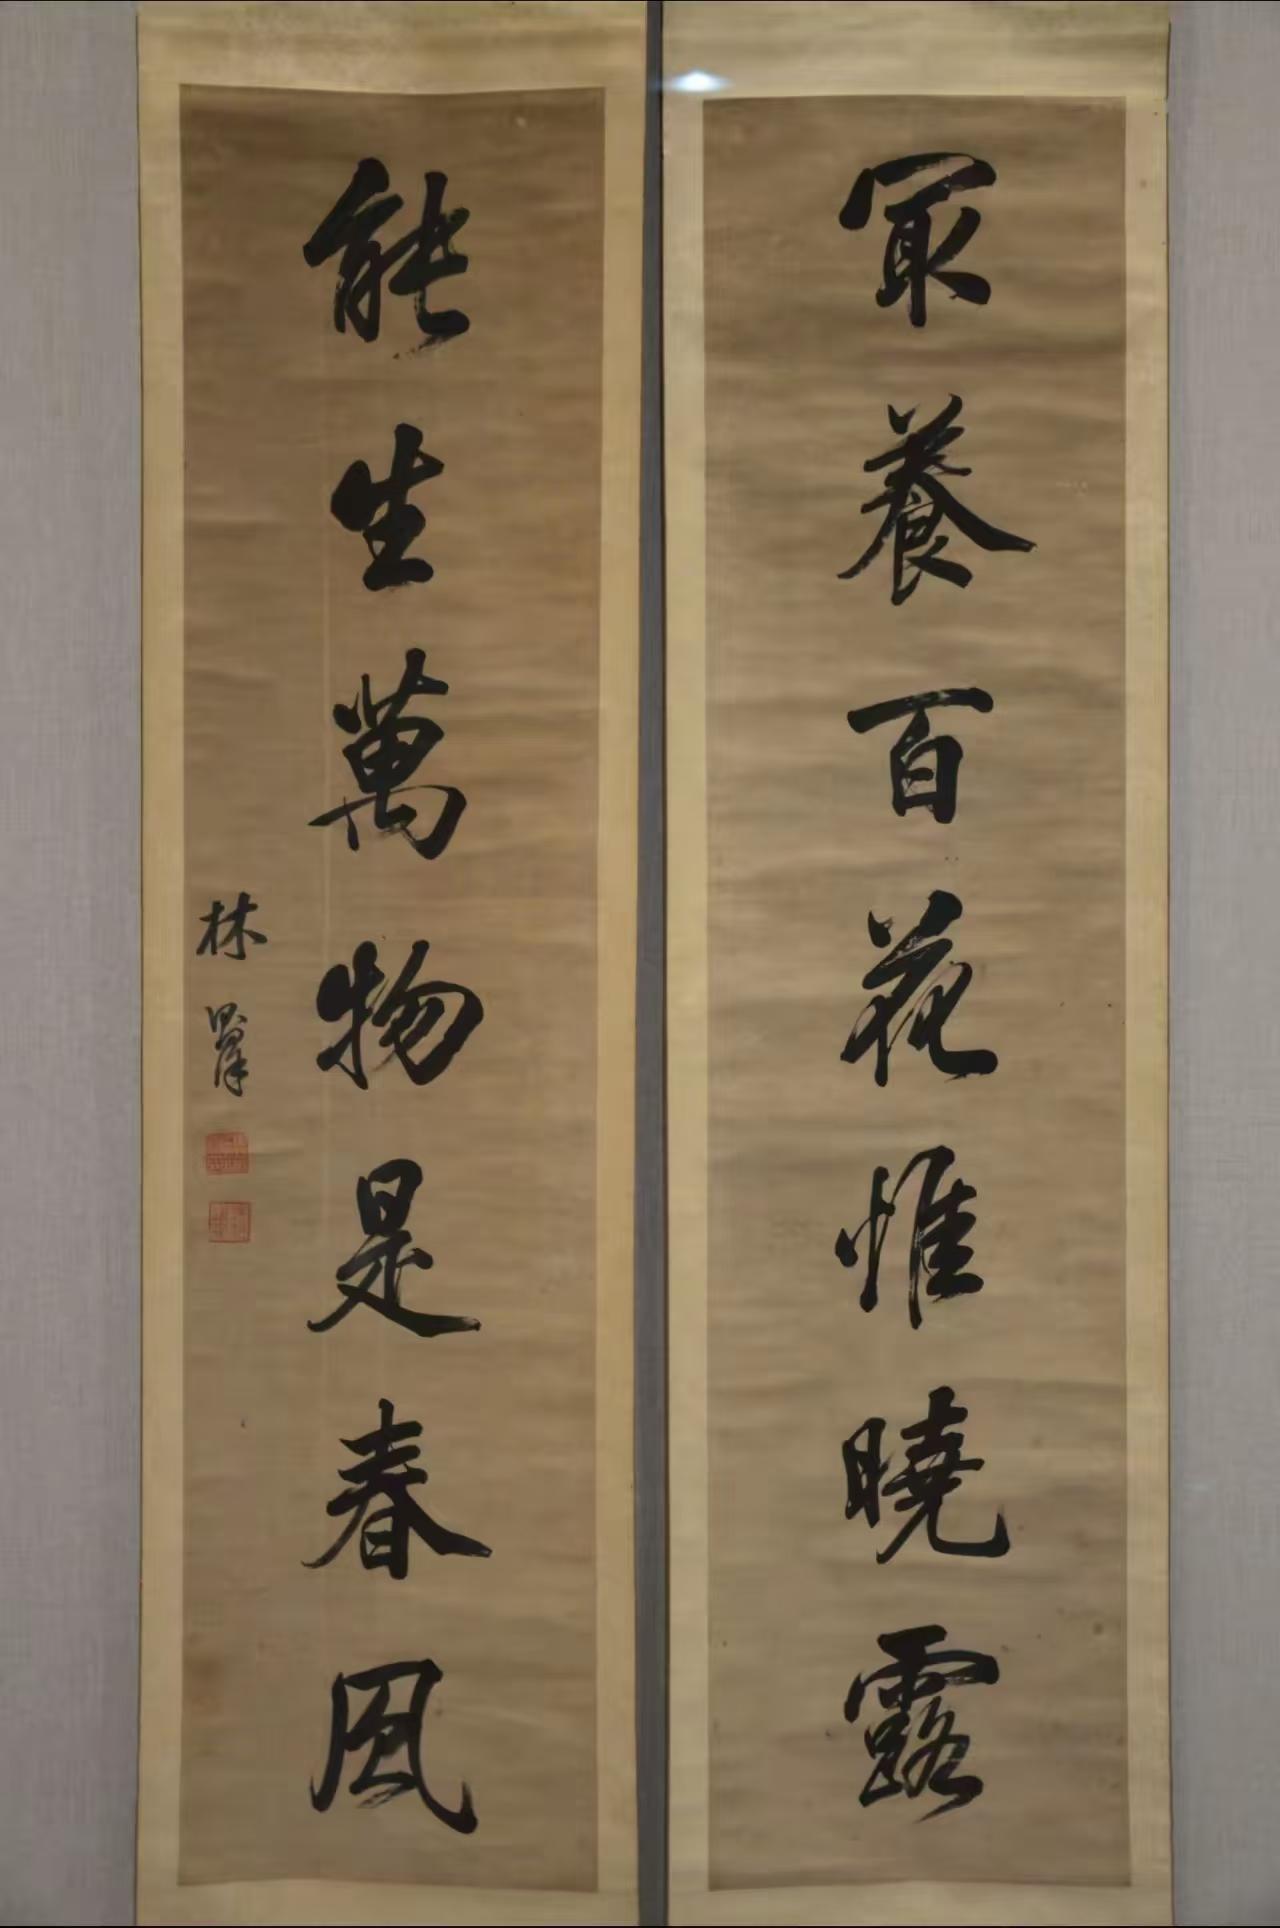 冣養百花惟曉露
能生萬物是春風
林翬